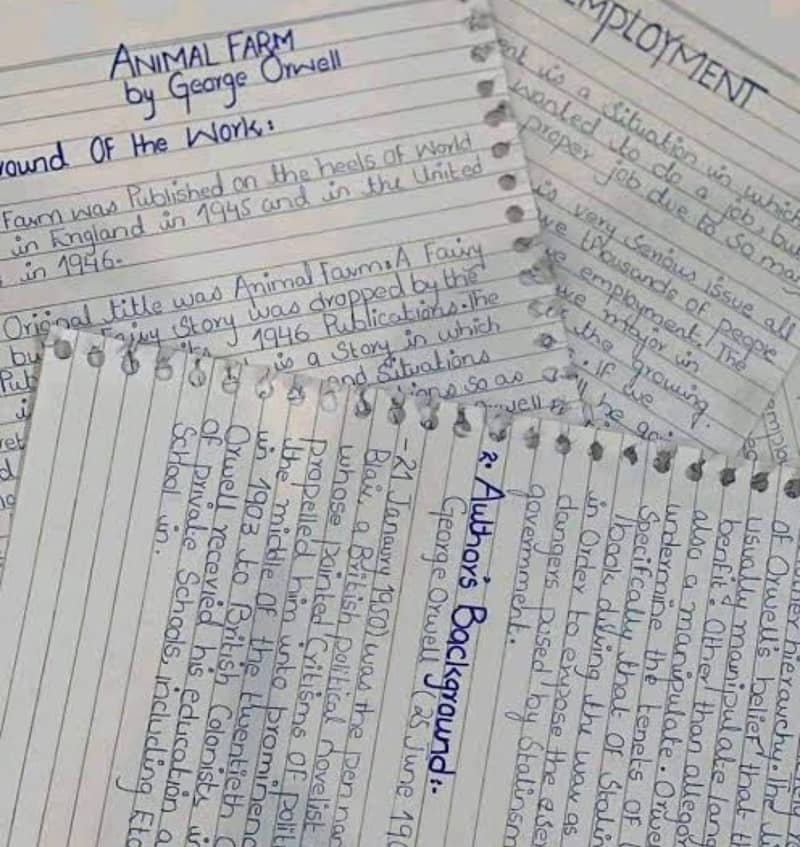 ANIMAL FARM
by George Orwell
Of the Work:
Farm was Published on the heels of World
in England in 1945 and in the United
in 1946.
Original title was Animal Farm: A Fairy
Fairy Story was dropped by the
1946 Publications. The
is a Story in which
and Situations
so as
EMPLOYMENT
is a Situation in which
wanted to do a job, but
proper job due to so many
is very serious issue all
thousands of people
employment. The
major in
the growing.
If we
be
2. Author's Background:.
George Orwell (25 June 190
- 21 Janaury 1950) was the pen nam
Blair, a British political novelist
whose painted Critisms of polit
propelled him into prominenc
the middle of the twentieth C
in 1903 to British Colonists in
Orwell recevied his education a
of private Schools, including Eto
School in.
hierauchy. The
of Orwell's belief that th
usually manipulate lang
benfit. Other than allegor
also a manipulate. Orwe
undermine the tenets of
Specifcally that of Stalin
book diving the war as
in Order to expose the
dangers posed by Stalinsm
government.